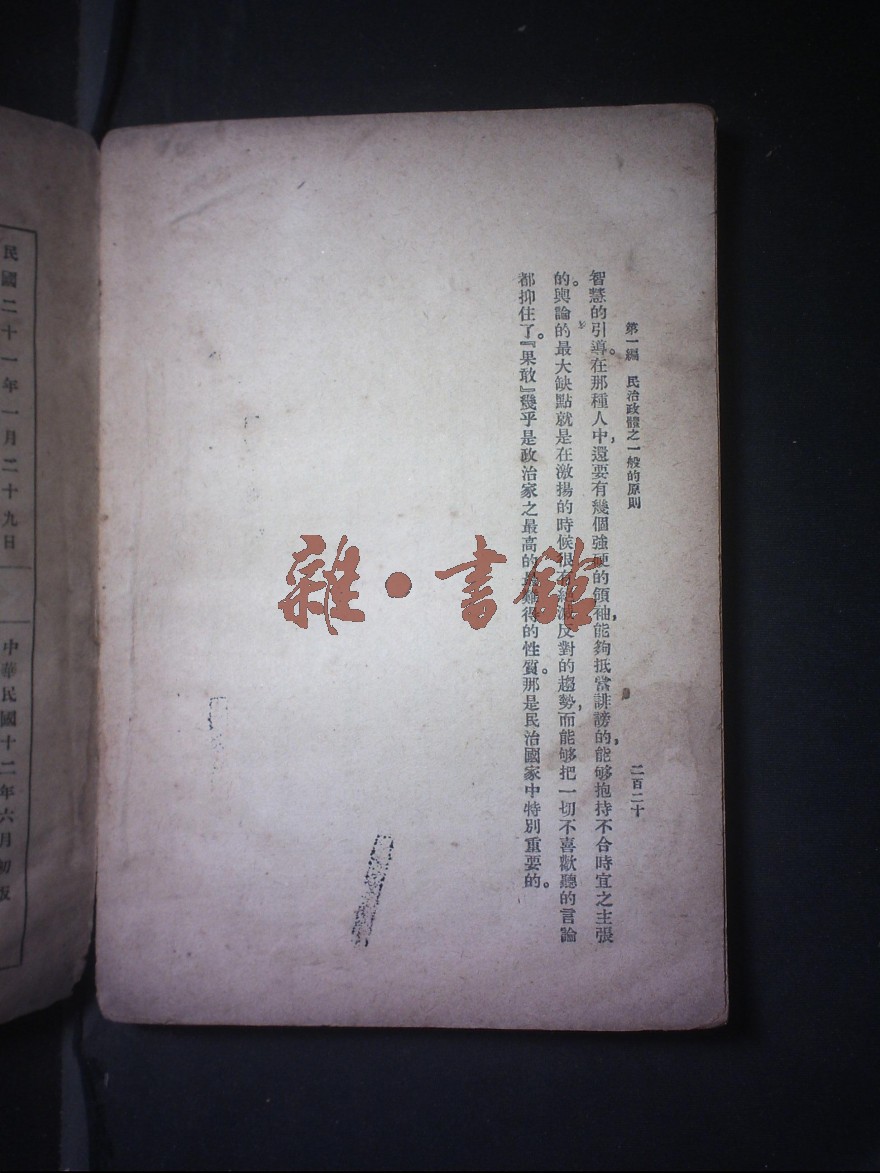 第一編　民治政體之一般的原則　二百二十
智慧的引導。在那種人中，還要有幾個強硬的領袖，能夠抵當誹謗的，能够抱持不合時宜之主張
的。輿論的最大缺點就是在激揚的時候很有絕滅反對的趨勢，而能够把一切不喜歡聽的言論
都抑住了。『果敢』幾乎是政治家之最高的最難得的性質。那是民治國家中特別重要的。
雜·書館
民國二十一年一月二十九日
中華民國十二年六月初版